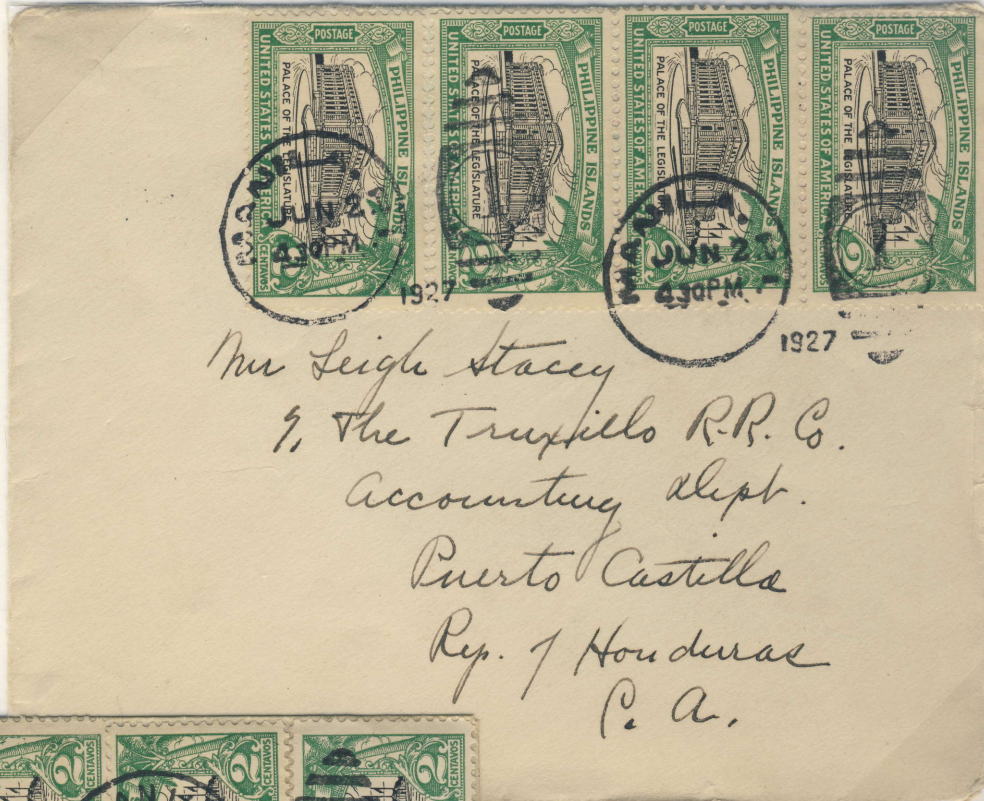 POSTAGE POSTAGE POSTAGE POSTAGE
UNITED STATES OF AMERICA PALACE OF THE LEGISLATURE PHILIPPINE ISLANDS
UNITED STATES OF AMERICA PALACE OF THE LEGISLATURE PHILIPPINE ISLANDS
UNITED STATES OF AMERICA PALACE OF THE LEGISLATURE PHILIPPINE ISLANDS
UNITED STATES OF AMERICA PALACE OF THE LEGISLATURE PHILIPPINE ISLANDS
2
MANILA, P.I.
JUN 2
4 30 PM
1927
MANILA, P.I.
JUN 2
4 30 PM
1927
Mr Leigh Stacey
℅ The Truxillo R.R. Co.
Accounting Dept.
Puerto Castilla
Rep. of Honduras
C. A.
2 CENTAVOS 2 CENTAVOS 2 CENTAVOS